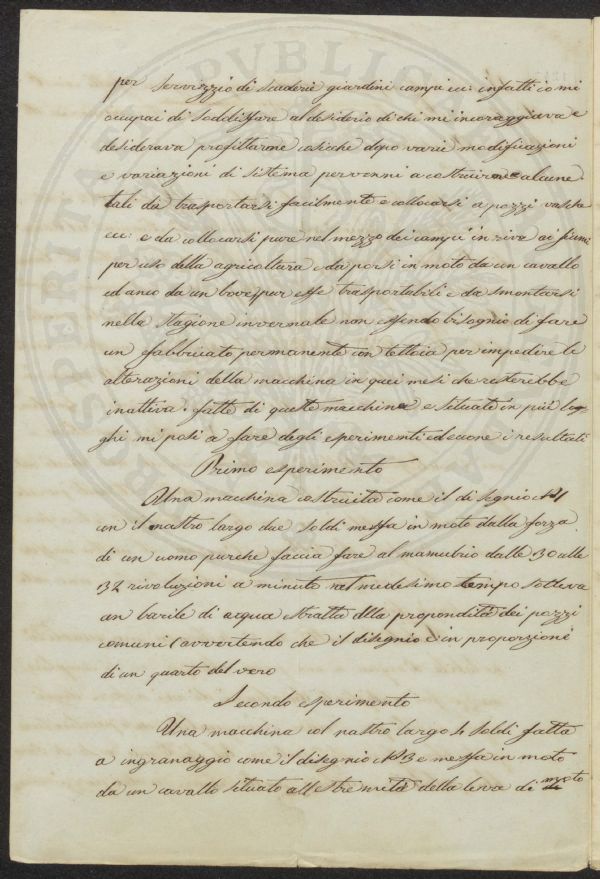 per servizzio di scuderie giardini campi ec: infatti io mi
occupai di soddisfare al desiderio di chi mi incoraggiava e
desiderava profittarne cosicche dopo varie modificazioni
e variazioni di sistema pervenni a costruirne alcune
tali da trasportarsi facilmente e collocarsi a pozzi vasche
ec: e da collocarsi pure nel mezzo dei campi in riva ai fiumi
per uso della agricoltura e da porsi in moto da un cavallo
ed anco da un bove pur esse trasportabili e da smontarsi
nella stagione invernale non essendo bisognio di fare
un fabbricato permanente con tettoia per impedire le
alterazioni della macchina in quei mesi che resterebbe
inattiva. fatte di queste macchine e situate in più luo-
ghi mi posi a fare degli esperimenti ed eccone i resultati
Primo esperimento
Una macchina costruita come il disegnio N1
con il nastro largo due soldi messa in moto dalla forza
di un uomo purche faccia fare al manubrio dalle 30 alle
32 rivoluzioni a minuto nel medesimo tempo solleva
un barile di acqua estratta dlla propondità dei pozzi
comuni (avvertendo che il disegnio è in proporzione
di un quarto del vero
Secondo esperimento
Una macchina col nastro largo 4 soldi fatta
a ingranaggio come il disegnio N3 e messa in moto
da un cavallo situato all estremità della leva di moto
PROSPERITAS PVBLICA